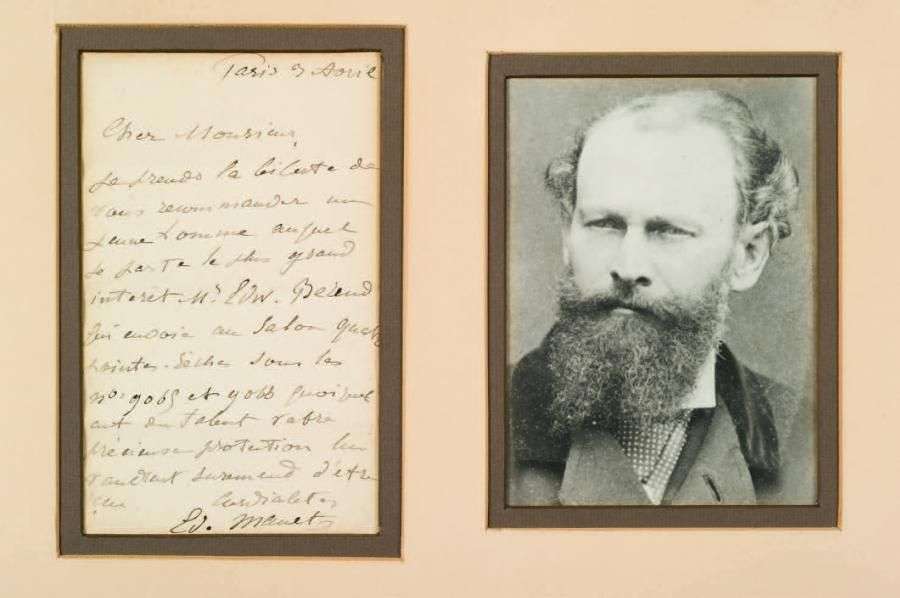 Paris 3 Avril
Cher Monsieur
Je prends la liberté de
vous recommander un
jeune homme auquel
je porte le plus grand
intérêt Mr Edw. Berend
qui envoie au Salon quatre
pointes-sèches sous les
nos 9065 et 9066 quoiqu'
ayant du talent votre
précieuse protection lui
vaudrait surement d'être
reçu Cordialités
Ed. Manet